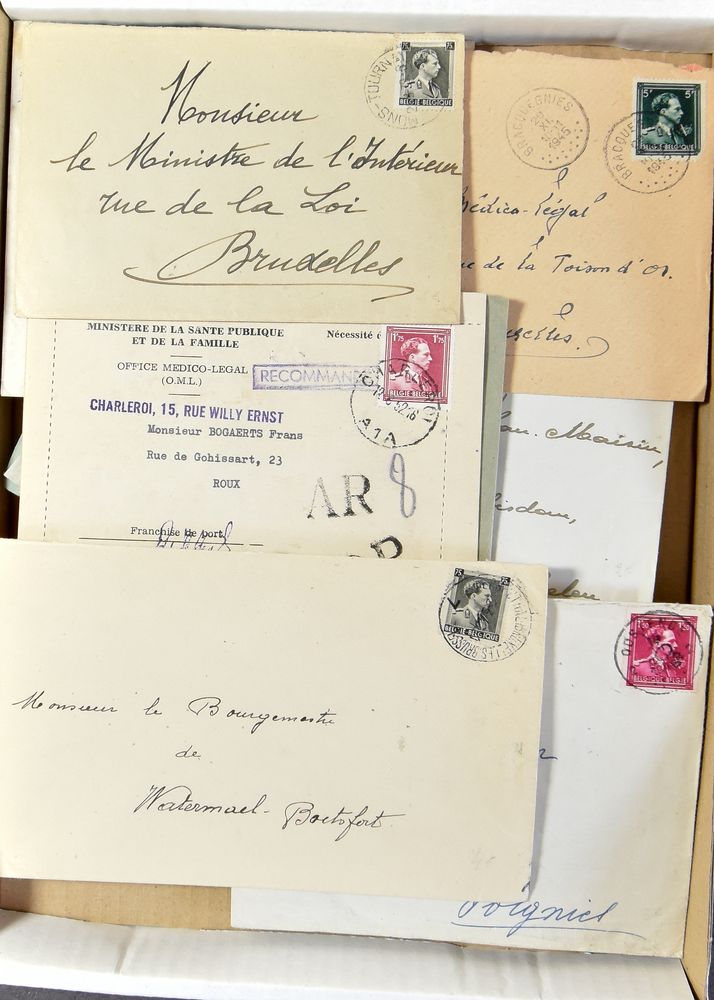 75 75
BELGIE·BELGIQUE
MONS-TOURN
Monsieur
le Ministre de l'Intérieur
rue de la Loi
Bruxelles
5F 5F
BELGIE·BELGIQUE
BRACQUEGNIES
XI
1945
BRACQUE
Médico-Légal
de la Toison d'Or.
MINISTERE DE LA SANTE PUBLIQUE
ET DE LA FAMILLE
OFFICE MEDICO-LEGAL
(O.M.L.)
Nécessité
RECOMMAN
1F75 1F75
BELGIQUE·BELGIE
A1A
CHARLEROI, 15, RUE WILLY ERNST
Monsieur BOGAERTS Frans
Rue de Gohissart, 23
ROUX
AR 8
Franchise de port
Maisin,
75 75
BELGIE·BELGIQUE
Monsieur le Bourgemestre
de
Watermael-Boitsfort.
BELGIQUE·BELGIE